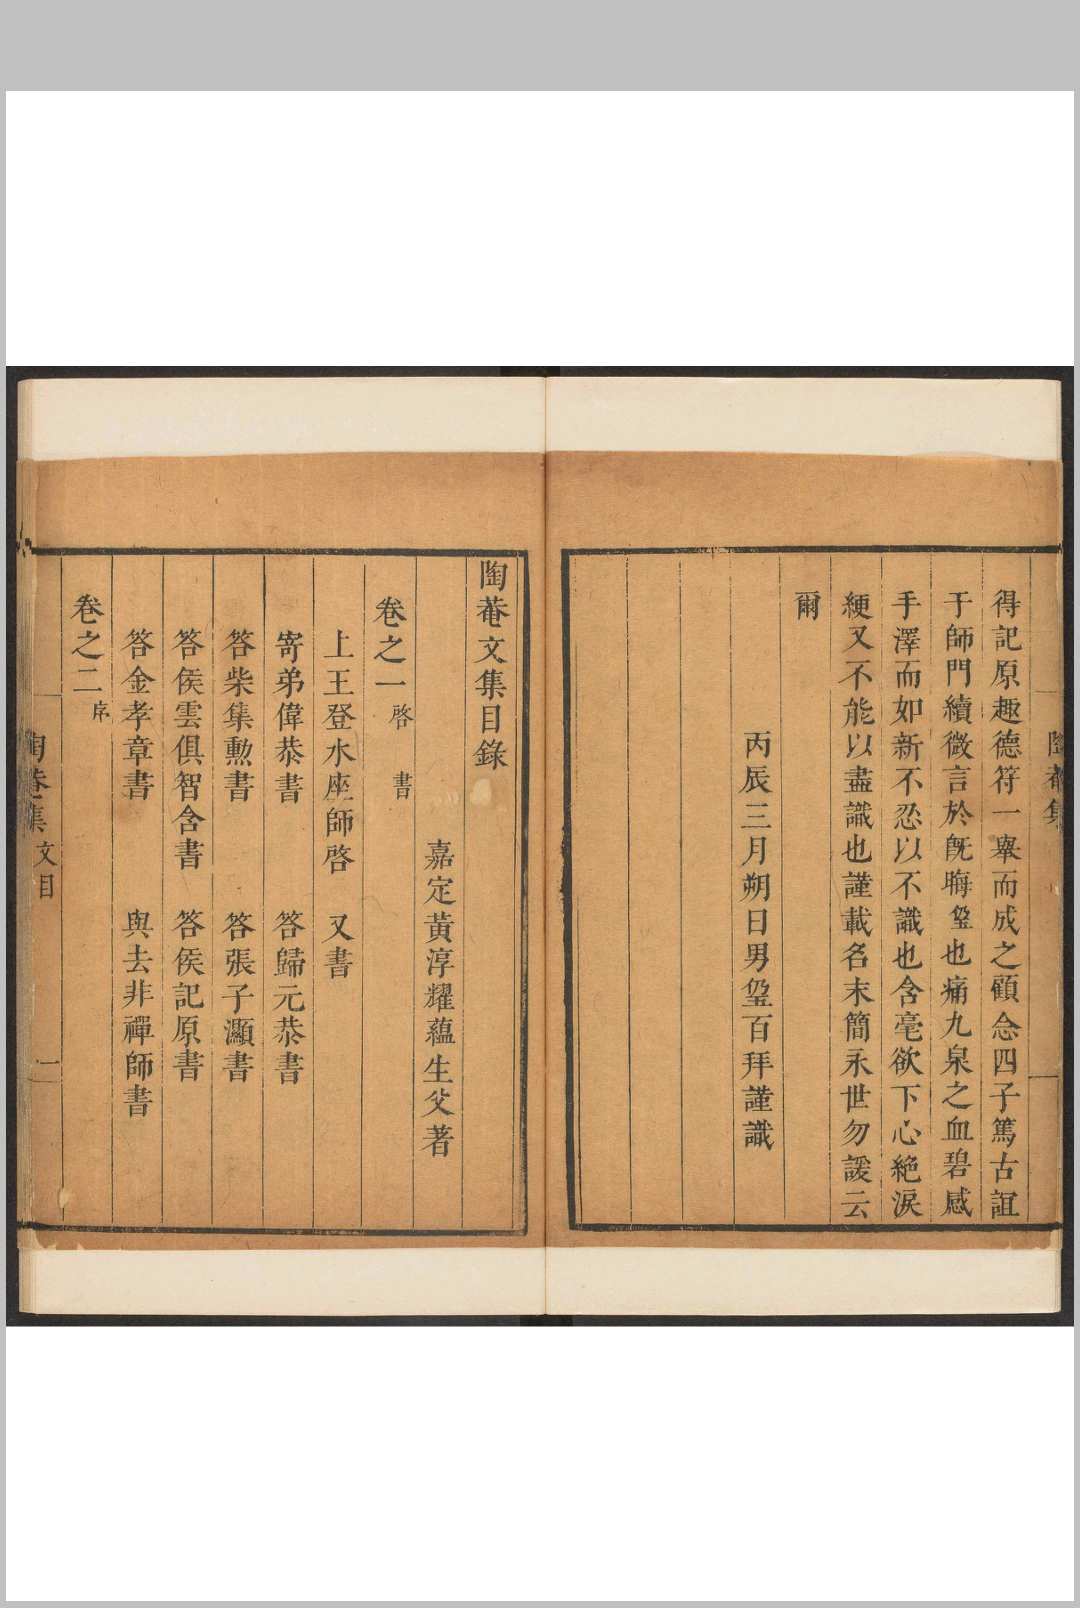 得記原趣德符一舉而成之顧念四子篤古誼
于師門續微言於旣晦瑿也痛九泉之血碧感
手澤而如新不忍以不識也含毫欲下心絕淚
綆又不能以盡識也謹載名末簡永世勿諼云
爾
丙辰三月朔日男瑿百拜謹識
陶菴文集目錄
嘉定黃淳耀蘊生父著
卷之一 啓 書
上王登水座師啓 又書
寄弟偉恭書 答歸元恭書
答柴集勲書 答張子灝書
答侯雲俱智含書 答侯記原書
答金孝章書 與去非禪師書
卷之二 序
陶菴集 文目 一